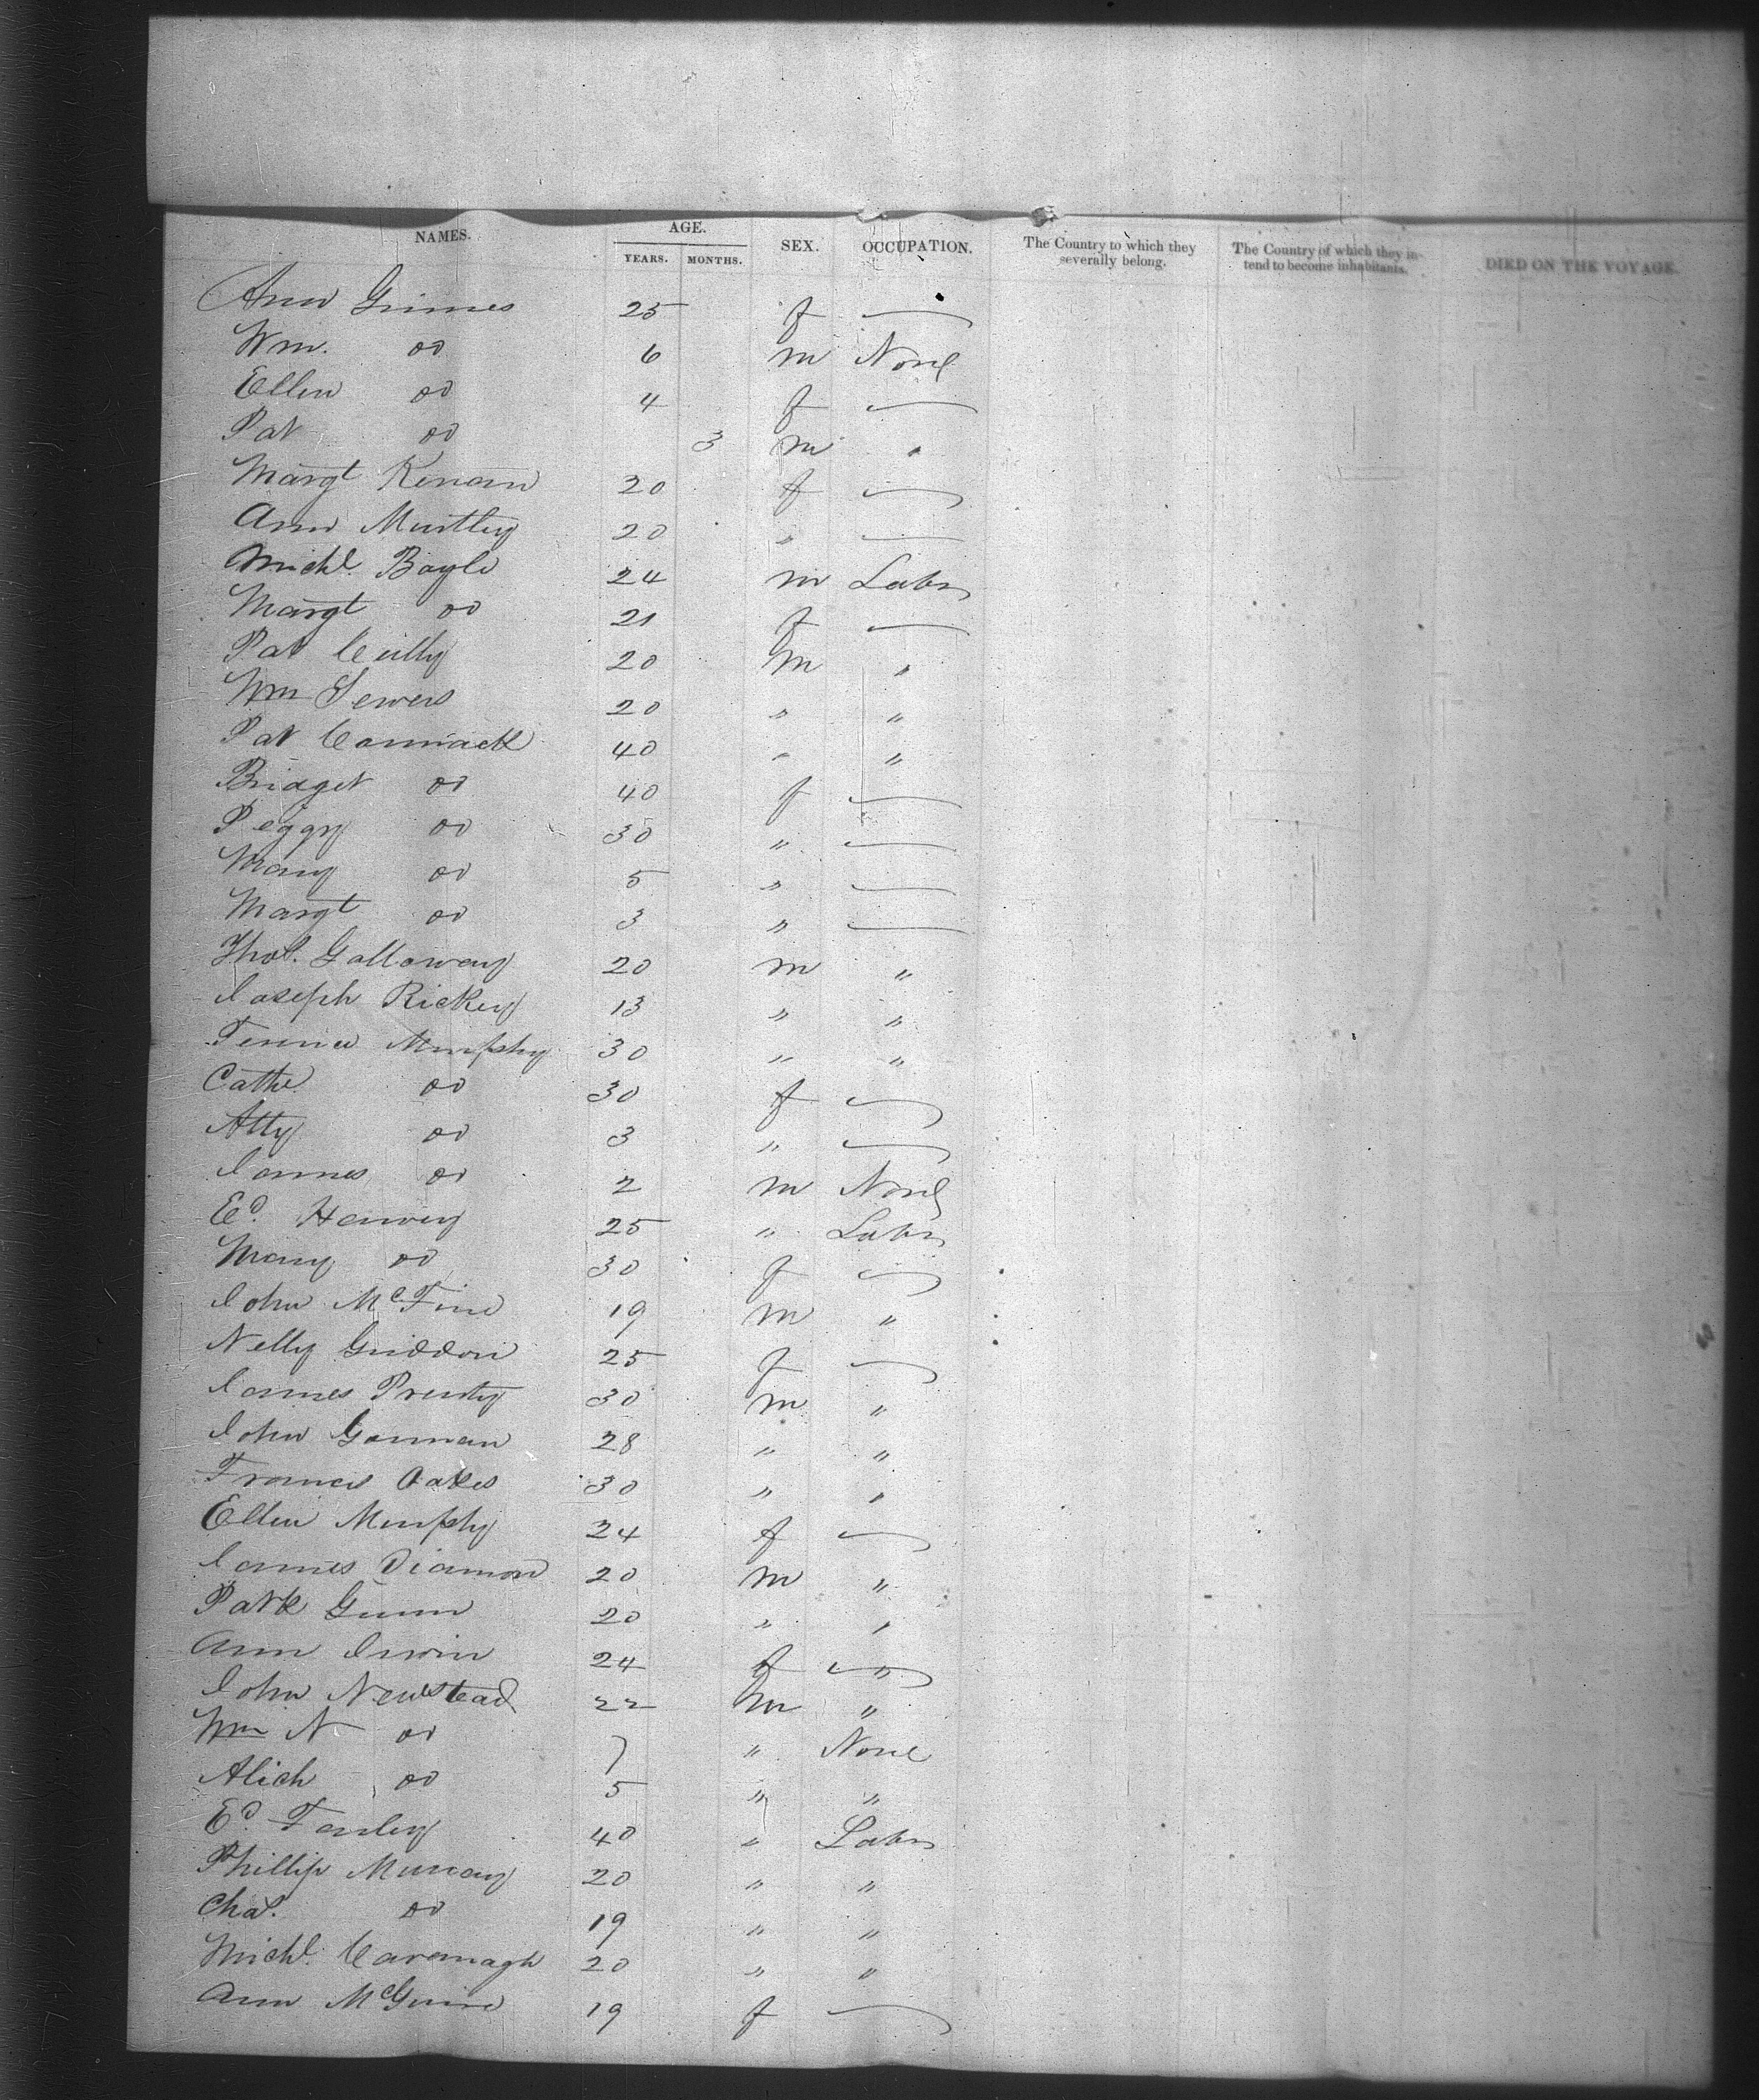 NAMES. AGE. SEX. OCCUPATION. The Country to which they severally belong. The Country of which they intend to become inhabitants. DIED ON THE VOYAGE.
YEARS. MONTHS.
Ann Grimes 25 f —
Wm. do 6 m None
Ellen do 4 f —
Pat do 3 m "
Margt Kenan 20 f —
Ann Murtley 20 " —
Michl. Boyle 24 m Labr
Margt do 21 f —
Pat Cuilly 20 m "
Wm Sewers 20 " "
Pat Cormack 40 " "
Bridget do 40 f —
Peggy do 30 " —
Mary do 5 " —
Margt do 3 " —
Thos. Galloway 20 m "
Joseph Rickey 13 " "
Terence Murphy 30 " "
Cathe do 30 f —
Atty do 3 " —
James do 2 m None
Ed. Harvey 25 " Labr
Mary do 30 f —
John McTine 19 m "
Nelly Griddon 25 f —
James Prunty 30 m "
John Gorman 28 " "
Francis Oakes 30 " "
Ellen Murphy 24 f —
James Diamon 20 m "
Patk Gunn 20 " "
Ann Irwin 24 f "
John Newstead 22 m "
Wm N do 7 " None
Alich do 5 " "
Ed. Farley 40 " Labr
Phillip Murray 20 " "
Chas. do 19 " "
Michl. Cavanagh 20 " "
Ann McGuire 19 f —